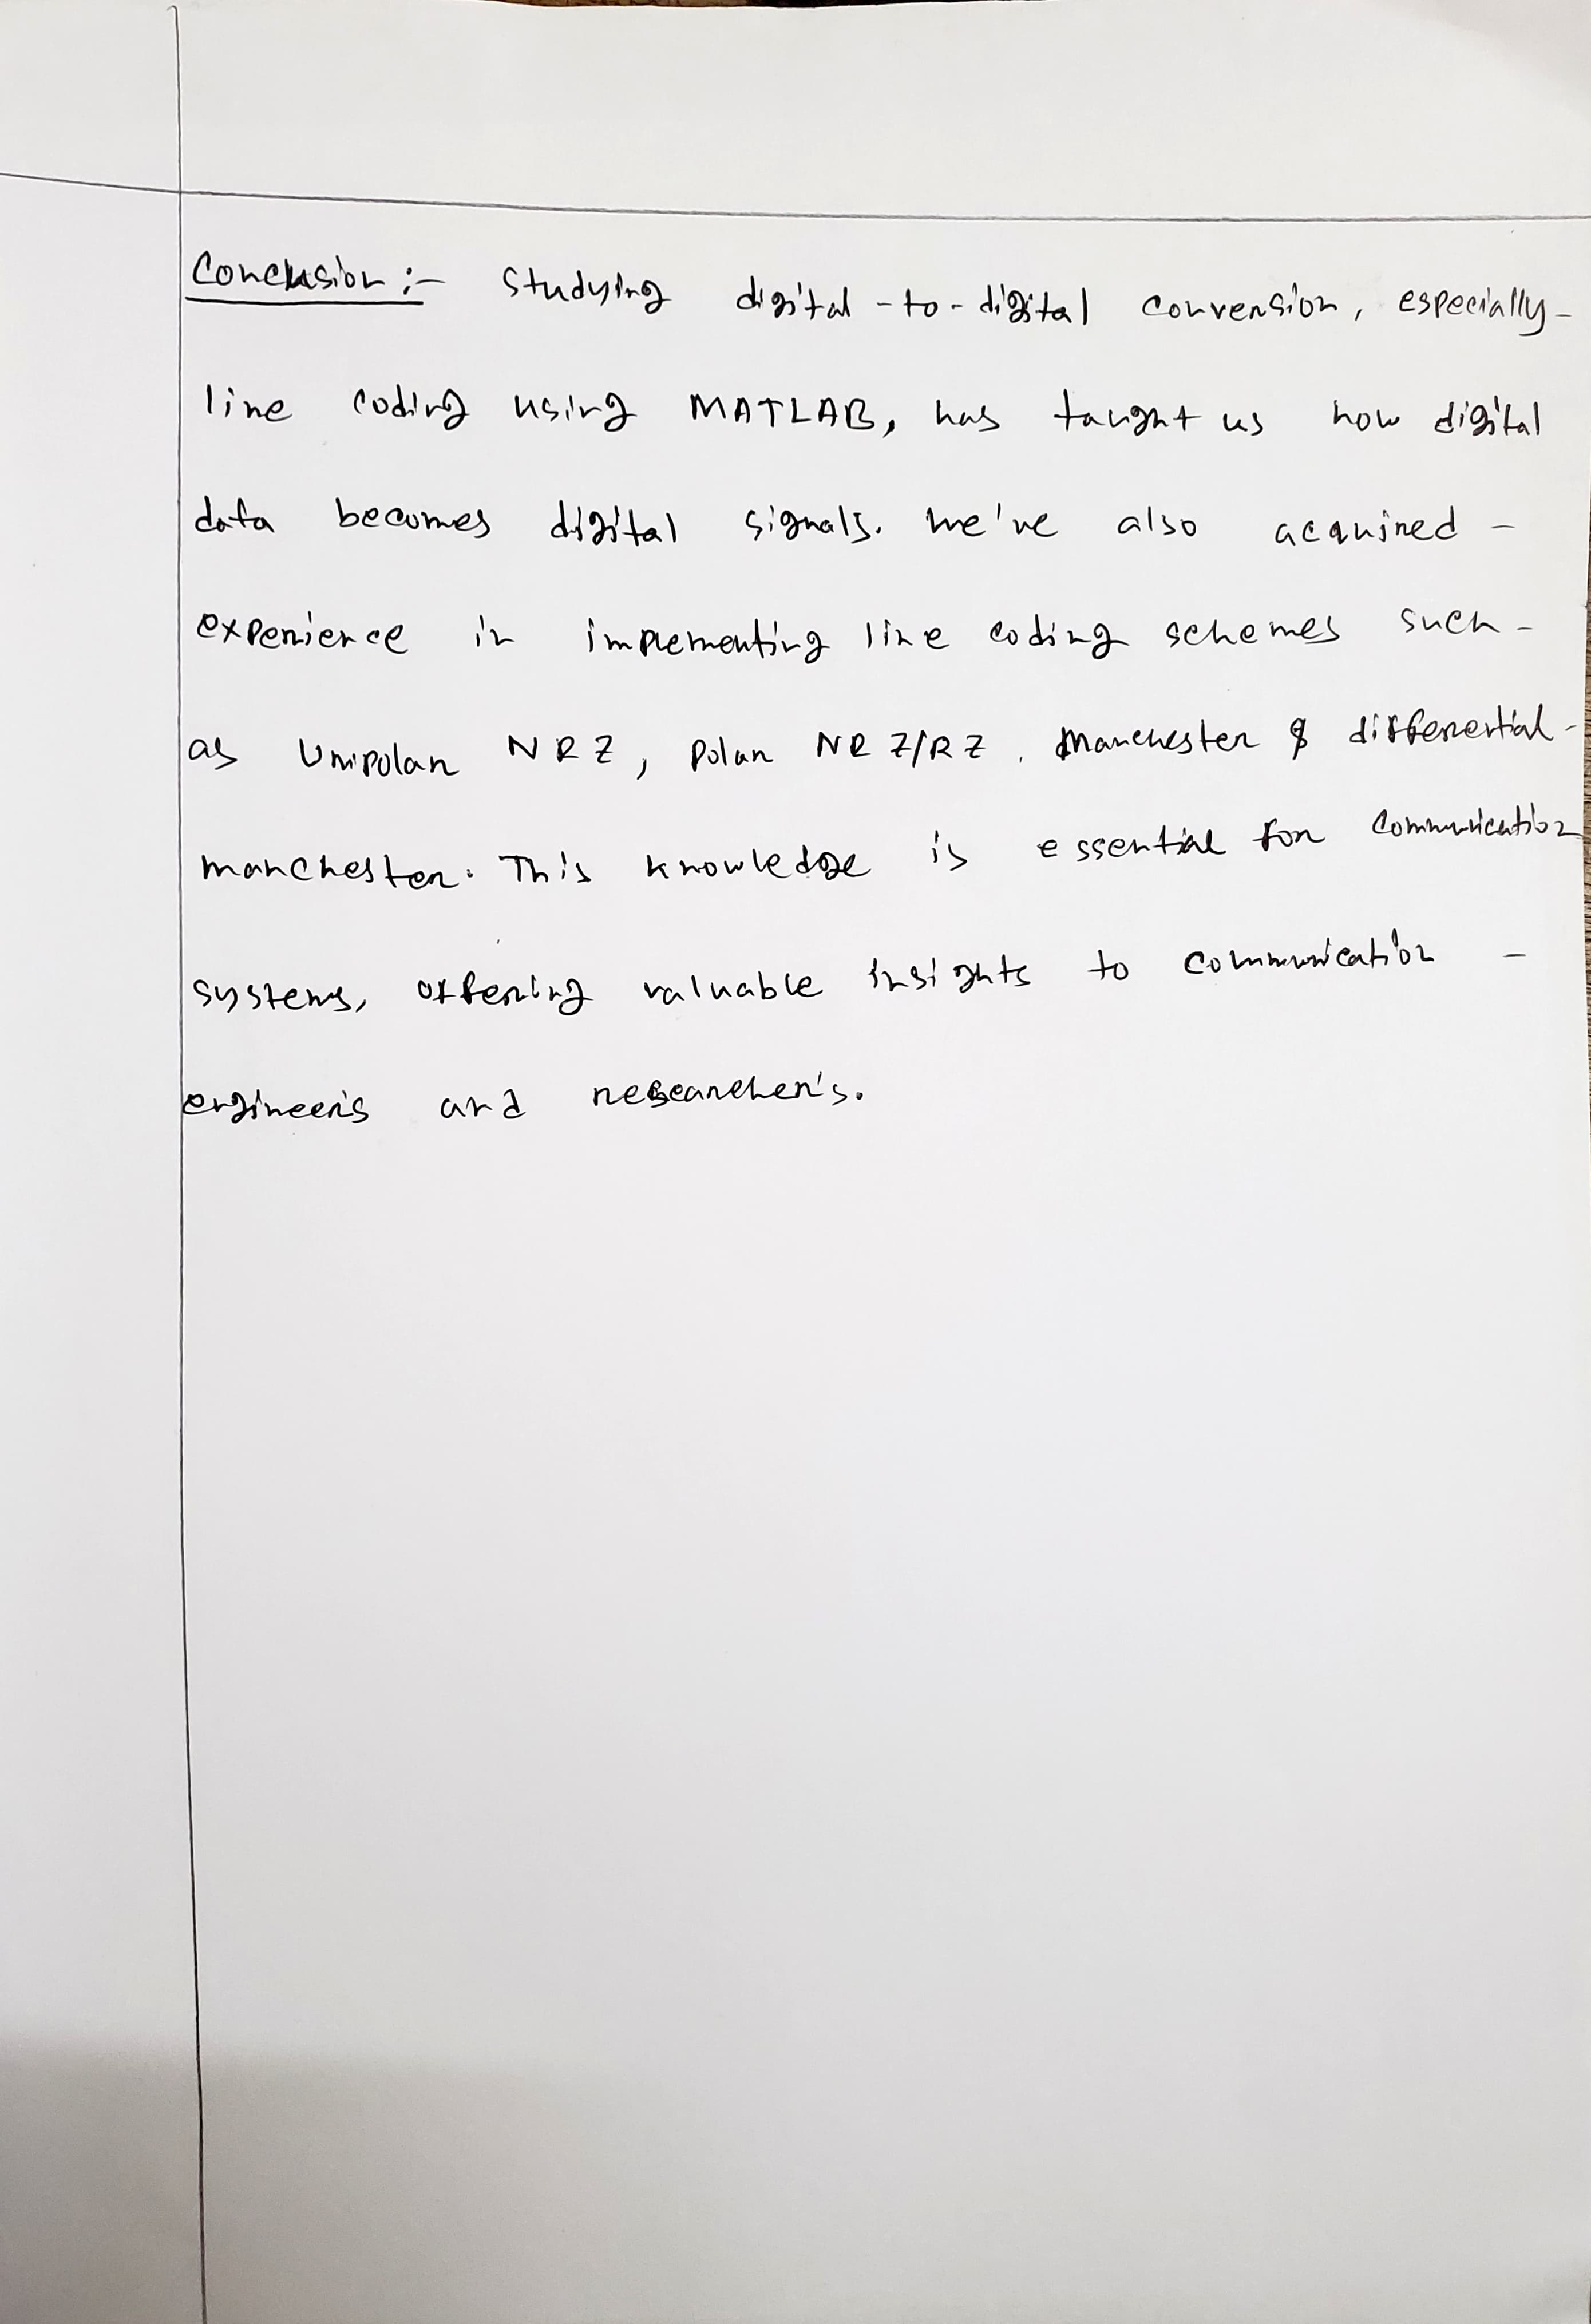 Conclusion :- Studying digital-to-digital conversion, especially-
line coding using MATLAB, has taught us how digital
data becomes digital signals. We've also acquired -
experience in implementing line coding schemes such-
as Unipolar NRZ, Polar NRZ/RZ, Manchester & differential-
manchester. This knowledge is essential for communication
systems, offering valuable insights to communication -
engineers and researchers.